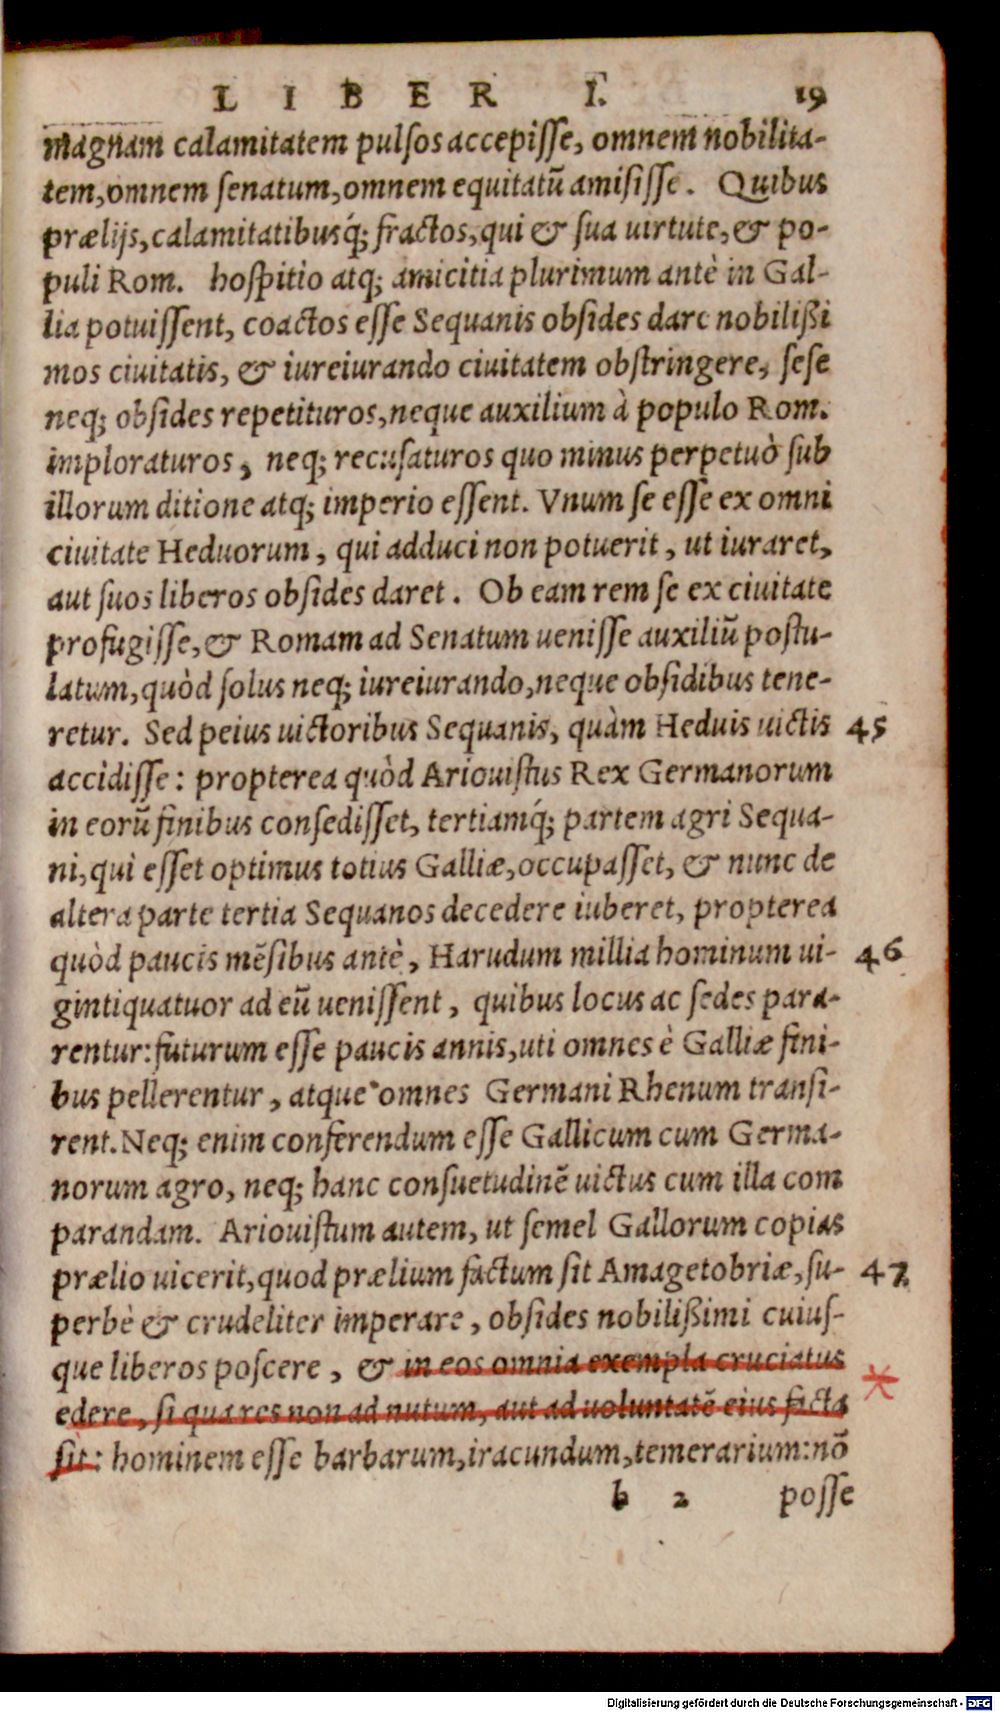 LIBER I. 19
magnam calamitatem pulſos accepiſſe, omnem nobilita-
tem, omnem ſenatum, omnem equitatū amiſiſſe. Quibus
prælijs, calamitatibusq́; fractos, qui & ſua uirtute, & po-
puli Rom. hoſpitio atq; amicitia plurimum antè in Gal-
lia potuiſſent, coactos eſſe Sequanis obſides dare nobilißi
mos ciuitatis, & iureiurando ciuitatem obſtringere, ſeſe
neq; obſides repetituros, neque auxilium à populo Rom.
imploraturos, neq; recuſaturos quo minus perpetuò ſub
illorum ditione atq; imperio eſſent. Vnum ſe eſſe ex omni
ciuitate Heduorum, qui adduci non potuerit, ut iuraret,
aut ſuos liberos obſides daret. Ob eam rem ſe ex ciuitate
profugiſſe, & Romam ad Senatum ueniſſe auxiliū poſtu-
latum, quòd ſolus neq; iureiurando, neque obſidibus tene-
retur. Sed peius uictoribus Sequanis, quàm Heduis uictis 45
accidiſſe: propterea quòd Ariouiſtus Rex Germanorum
in eorū finibus conſediſſet, tertiamq́; partem agri Sequa-
ni, qui eſſet optimus totius Galliæ, occupaſſet, & nunc de
altera parte tertia Sequanos decedere iuberet, propterea
quòd paucis mēſibus antè, Harudum millia hominum ui- 46
gintiquatuor ad eū ueniſſent, quibus locus ac ſedes para-
rentur: futurum eſſe paucis annis, uti omnes è Galliæ fini-
bus pellerentur, atque omnes Germani Rhenum tranſi-
rent. Neq; enim conferendum eſſe Gallicum cum Germa-
norum agro, neq; hanc conſuetudinē uictus cum illa com
parandam. Ariouiſtum autem, ut ſemel Gallorum copias
prælio uicerit, quod prælium factum ſit Amagetobriæ, ſu- 47
perbè & crudeliter imperare, obſides nobilißimi cuiuſ-
que liberos poſcere, & in eos omnia exempla cruciatus
edere, ſi qua res non ad nutum, aut ad uoluntatē eius facta
ſit: hominem eſſe barbarum, iracundum, temerarium: nō
b 2 poſſe
Digitalisierung gefördert durch die Deutsche Forschungsgemeinschaft - DFG